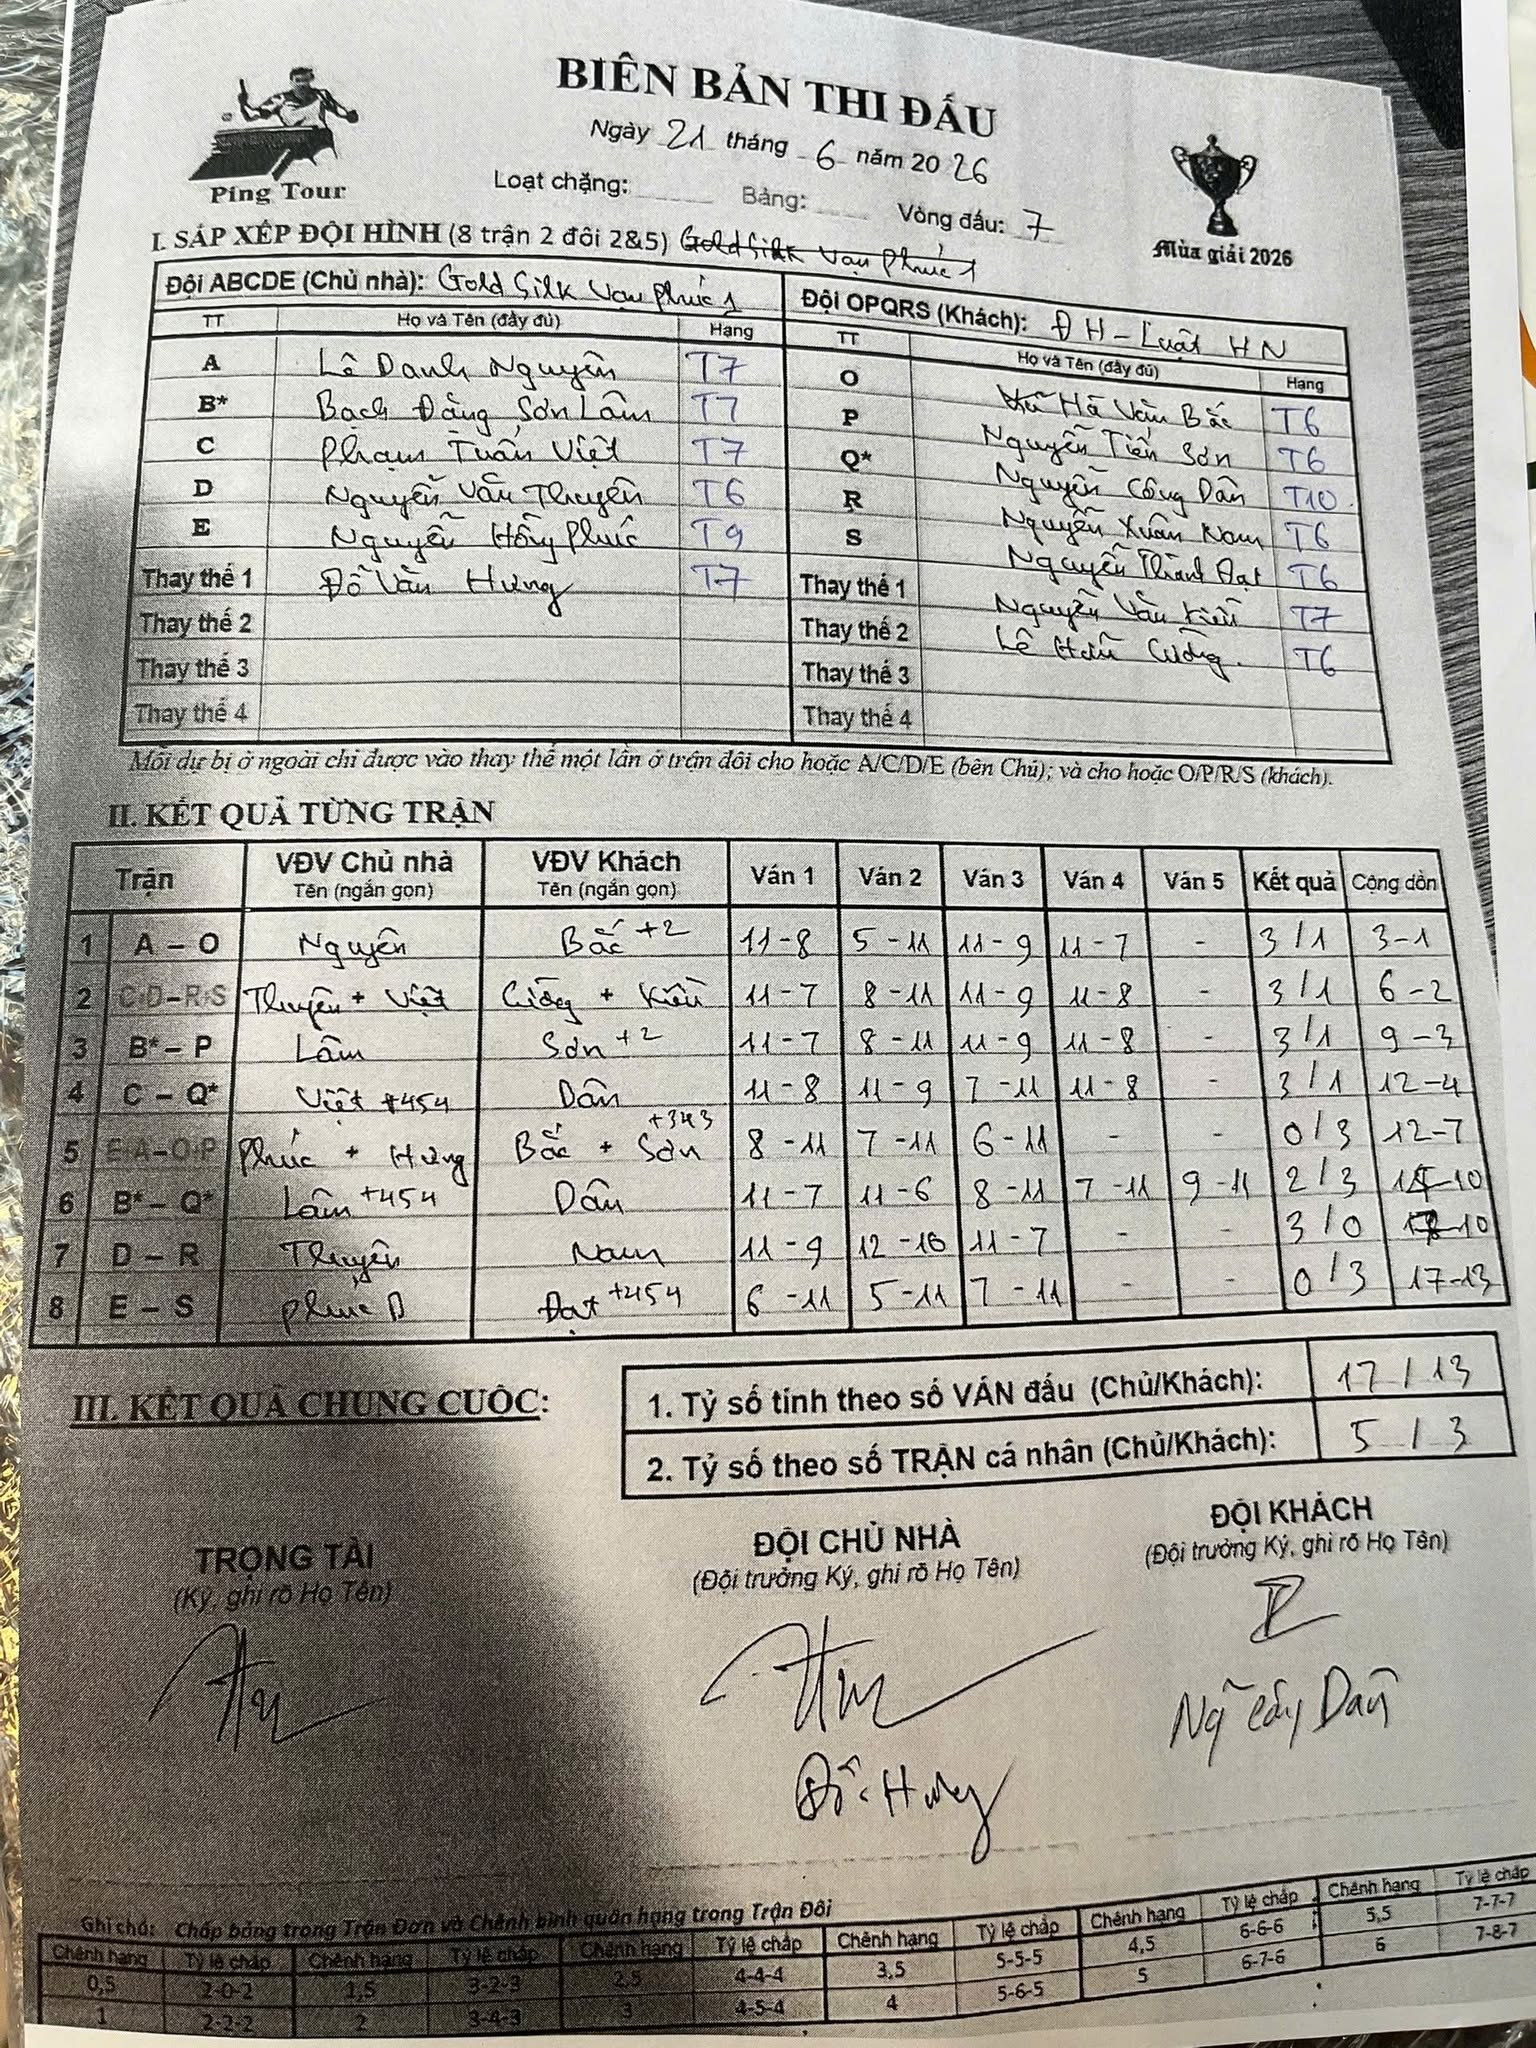 BIÊN BẢN THI ĐẤU
Ngày 21 tháng 6 năm 2026
Ping Tour
Loạt chặng: Bảng: Vòng đấu: 7
Mùa giải 2026
I. SẮP XẾP ĐỘI HÌNH (8 trận 2 đôi 2&5) Gold Silk Vạn Phúc 1
Đội ABCDE (Chủ nhà): Gold Silk Vạn Phúc 1 Đội OPQRS (Khách): ĐH-Luật HN
TT Họ và Tên (đầy đủ) Hạng TT Họ và Tên (đầy đủ) Hạng
A Lê Danh Nguyên T7 O Hà Văn Bắc T6
B* Bạch Đặng Sơn Lâm T7 P Nguyễn Tiến Sơn T6
C Phạm Tuấn Việt T7 Q* Nguyễn Công Dân T10
D Nguyễn Văn Thuyên T6 R Nguyễn Xuân Nam T6
E Nguyễn Hồng Phúc T9 S Nguyễn Thành Đạt T6
Thay thế 1 Đỗ Văn Hưng T7 Thay thế 1 Nguyễn Văn Kiều T7
Thay thế 2 Thay thế 2 Lê Hữu Cường T6
Thay thế 3 Thay thế 3
Thay thế 4 Thay thế 4
Mỗi dự bị ở ngoài chỉ được vào thay thế một lần ở trận đôi cho hoặc A/C/D/E (bên Chủ); và cho hoặc O/P/R/S (khách).
II. KẾT QUẢ TỪNG TRẬN
Trận VĐV Chủ nhà Tên (ngắn gọn) VĐV Khách Tên (ngắn gọn) Ván 1 Ván 2 Ván 3 Ván 4 Ván 5 Kết quả Cộng dồn
1 A – O Nguyên Bắc +2 11-8 5-11 11-9 11-7 - 3/1 3-1
2 C+D–R+S Thuyên + Việt Cường + Kiều 11-7 8-11 11-9 11-8 - 3/1 6-2
3 B* – P Lâm Sơn +2 11-7 8-11 11-9 11-8 - 3/1 9-3
4 C – Q* Việt +454 Dân 11-8 11-9 7-11 11-8 - 3/1 12-4
5 E+A–O+P Phúc + Hưng Bắc + Sơn +343 8-11 7-11 6-11 - - 0/3 12-7
6 B* – Q* Lâm +454 Dân 11-7 11-6 8-11 7-11 9-11 2/3 14-10
7 D – R Thuyên Nam 11-9 12-10 11-7 - - 3/0 17-10
8 E – S Phúc Đạt +454 6-11 5-11 7-11 - - 0/3 17-13
III. KẾT QUẢ CHUNG CUỘC:
1. Tỷ số tính theo số VÁN đấu (Chủ/Khách): 17/13
2. Tỷ số theo số TRẬN cá nhân (Chủ/Khách): 5/3
TRỌNG TÀI ĐỘI CHỦ NHÀ ĐỘI KHÁCH
(Ký, ghi rõ Họ Tên) (Đội trưởng Ký, ghi rõ Họ Tên) (Đội trưởng Ký, ghi rõ Họ Tên)
Ghi chú: Chấp bảng trong Trận Đơn và Chênh bình quân hạng trong Trận Đôi
Chênh hạng Tỷ lệ chấp Chênh hạng Tỷ lệ chấp Chênh hạng Tỷ lệ chấp Chênh hạng Tỷ lệ chấp Chênh hạng Tỷ lệ chấp Chênh hạng Tỷ lệ chấp
0,5 2-0-2 1,5 3-2-3 2,5 4-4-4 3,5 5-5-5 4,5 6-6-6 5,5 7-7-7
1 2-2-2 2 3-4-3 3 4-5-4 4 5-6-5 5 6-7-6 6 7-8-7